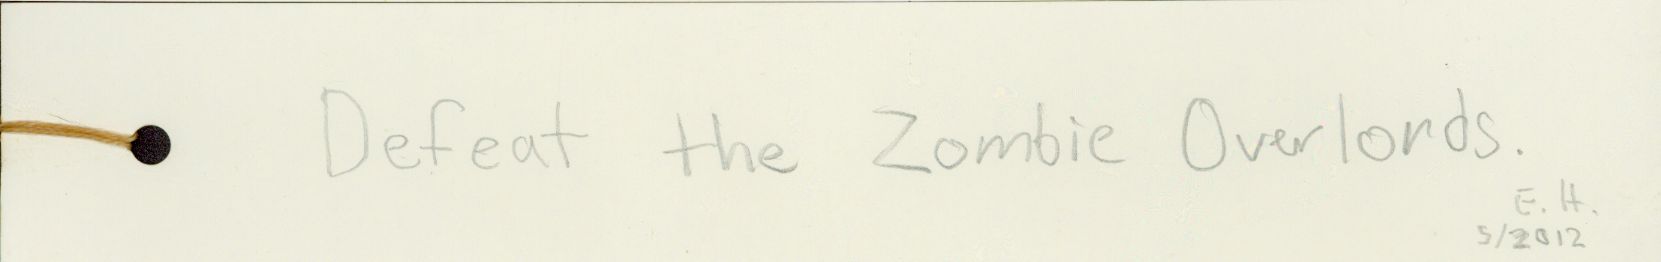 Defeat the Zombie Overlords.
E. H.
5/2012